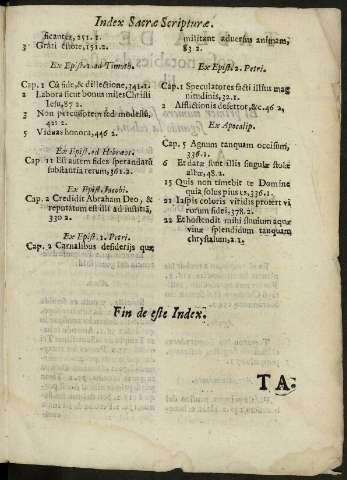 Index Sacræ Scripturæ.
ficantes, 251.1.
3 Grati estote, 151.2.
Ex Epist. 2. ad Timoth.
Cap. 1 Cũ fide, & dilectione, 341.1.
2 Labora sicut bonus miles Christi
Iesu, 87 2.
3 Non percussorem sed modestũ,
421 2.
5 Viduas honora, 446 2.
Ex Epist. ad Hebræos.
Cap. 11 Est autem fides sperandarũ
substantia rerum, 361.2.
Ex Epist. Jacobi.
Cap. 2 Credidit Abraham Deo, &
reputatum est illi ad iustitiã,
330 2.
Ex Epist. 1. Petri.
Cap. 2 Carnalibus desiderijs quæ
militant adversus animam,
83.2.
Ex Epist. 2. Petri.
Cap. 1 Speculatores facti illius mag
nitudinis, 32.1.
2 Afflictionis desertor, &c. 46 2,
Ex Apocalip.
Cap. 5 Agnum tanquam occisum,
336.1.
6 Et datæ sunt illis singulæ stolæ
albæ, 48.2.
15 Quis non timebit te Domine
quia solus pius es, 336.1.
21 Iaspis coloris viridis profert vi
rorum fidei, 378.2.
22 Et hostendit mihi fluvium aquæ
vivæ splendidum tanquam
chrystalum, 2.1.
Fin de este Index.
TA.